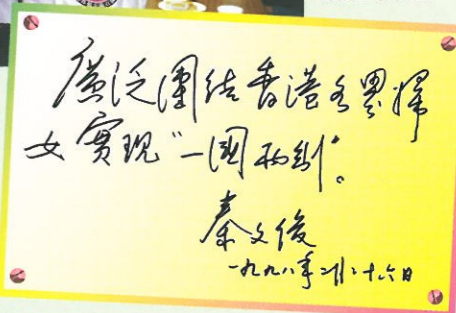 廣泛團结香港各界婦
女實現“一國两制”。
秦文俊
一九九八年二月二十六日